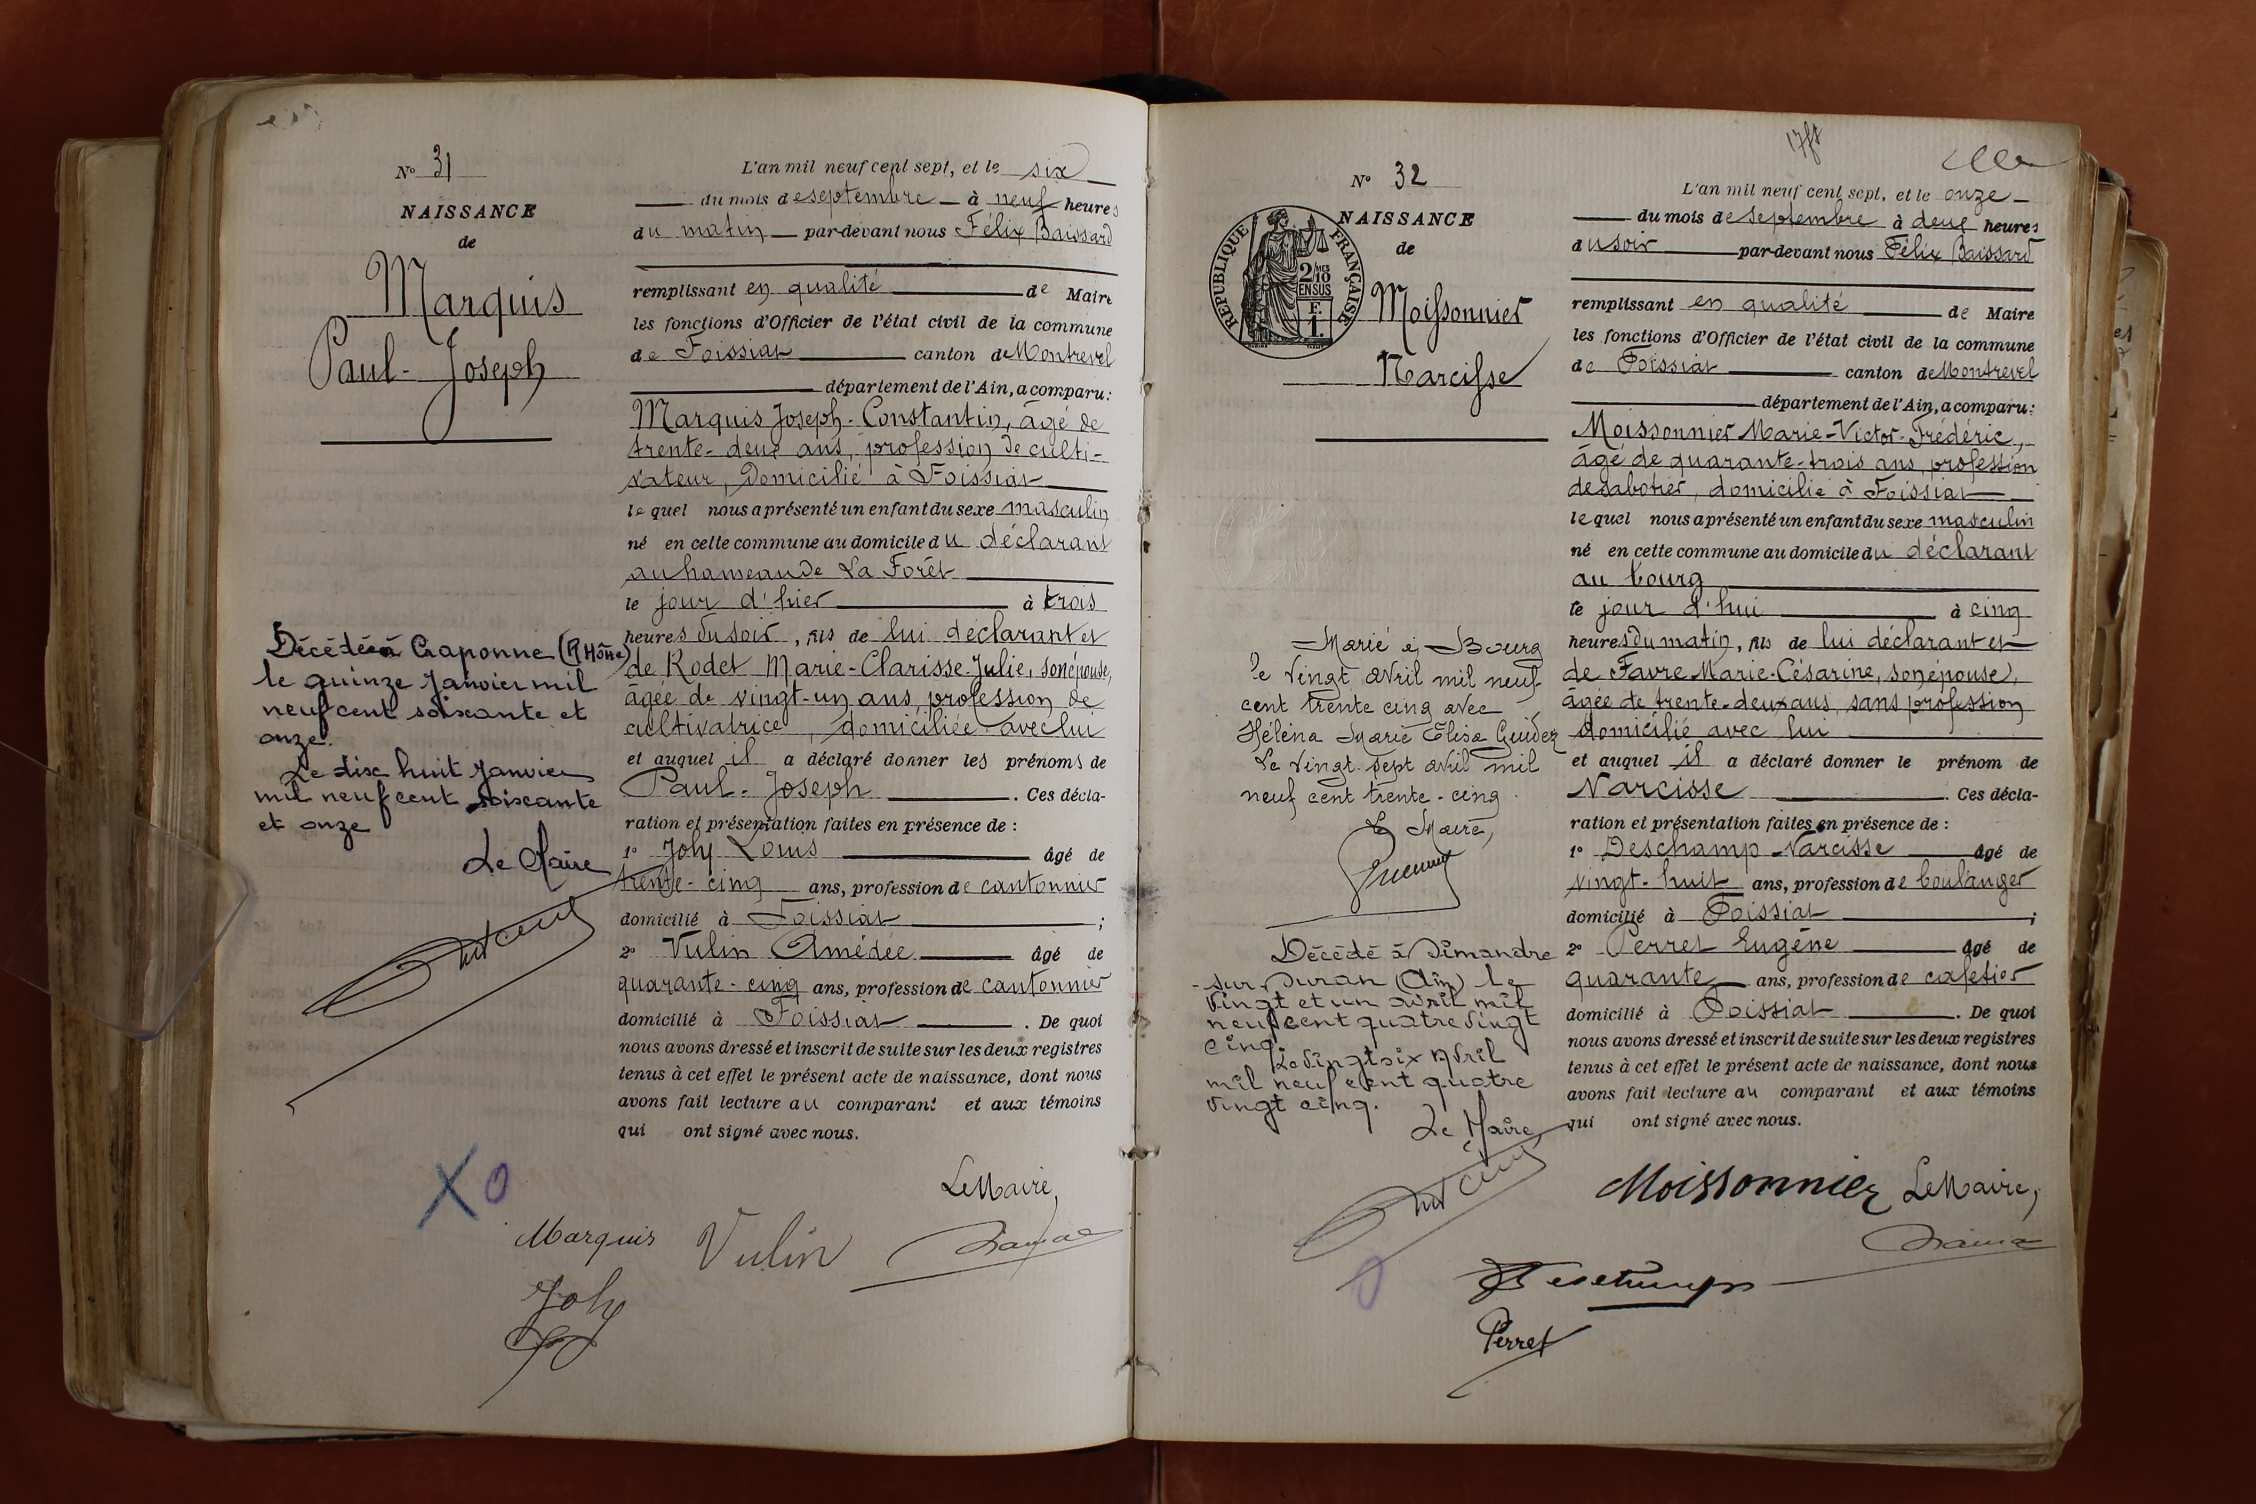 N° 31
NAISSANCE
de
Marquis
Paul-Joseph
Décédé à Craponne (Rhône)
le quinze Janvier mil
neuf cent soixante et
onze.
Le dix huit Janvier
mil neuf cent soixante
et onze
Le Maire
L'an mil neuf cent sept, et le six
du mois de septembre à neuf heures
du matin par-devant nous Félix Baissard
remplissant en qualité de Maire
les fonctions d'Officier de l'état civil de la commune
de Foissiat canton de Montrevel
département de l'Ain, a comparu:
Marquis Joseph-Constantin, âgé de
trente-deux ans, profession de culti-
vateur, domicilié à Foissiat
lequel nous a présenté un enfant du sexe masculin
né en cette commune au domicile du déclarant
au hameau de La Forêt
le jour d'hier à trois
heures du soir, fils de lui déclarant et
de Rodet Marie-Clarisse-Julie, son épouse,
âgée de vingt-un ans, profession de
cultivatrice, domiciliée avec lui
et auquel il a déclaré donner les prénoms de
Paul-Joseph. Ces décla-
ration et présentation faites en présence de :
1° Joly Louis âgé de
trente-cinq ans, profession de cantonnier
domicilié à Foissiat ;
2° Vulin Amédée âgé de
quarante-cinq ans, profession de cantonnier
domicilié à Foissiat. De quoi
nous avons dressé et inscrit de suite sur les deux registres
tenus à cet effet le présent acte de naissance, dont nous
avons fait lecture au comparant et aux témoins
qui ont signé avec nous.
X O
Le Maire,
Marquis Vulin
Joly
N° 32
NAISSANCE
de
RÉPUBLIQUE FRANÇAISE
2/10
EN SUS
F.
1.
Moissonnier
Narcisse
Marié à Bourg
le vingt avril mil neuf
cent trente cinq avec
Héléna Marie Elisa Guidez
Le vingt-sept avril mil
neuf cent trente-cinq.
Le Maire,
Décédé à Simandre
-sur-Suran (Ain) le
vingt et un avril mil
neuf cent quatre vingt
cinq.
Le vingt six Avril
mil neuf cent quatre
vingt cinq.
Le Maire,
L'an mil neuf cent sept, et le onze
du mois de septembre à deux heures
du soir par-devant nous Félix Baissard
remplissant en qualité de Maire
les fonctions d'Officier de l'état civil de la commune
de Foissiat canton de Montrevel
département de l'Ain, a comparu:
Moissonnier Marie-Victor-Frédéric,
âgé de quarante-trois ans, profession
de sabotier, domicilié à Foissiat
lequel nous a présenté un enfant du sexe masculin
né en cette commune au domicile du déclarant
au bourg
le jour d'hui à cinq
heures du matin, fils de lui déclarant et
de Favre Marie-Césarine, son épouse,
âgée de trente-deux ans, sans profession
domicilié avec lui
et auquel il a déclaré donner le prénom de
Narcisse. Ces décla-
ration et présentation faites en présence de :
1° Deschamp Narcisse âgé de
vingt-huit ans, profession de boulanger
domicilié à Foissiat ;
2° Perret Eugène âgé de
quarante ans, profession de cafetier
domicilié à Foissiat. De quoi
nous avons dressé et inscrit de suite sur les deux registres
tenus à cet effet le présent acte de naissance, dont nous
avons fait lecture au comparant et aux témoins
qui ont signé avec nous.
Moissonnier Le Maire,
Perret